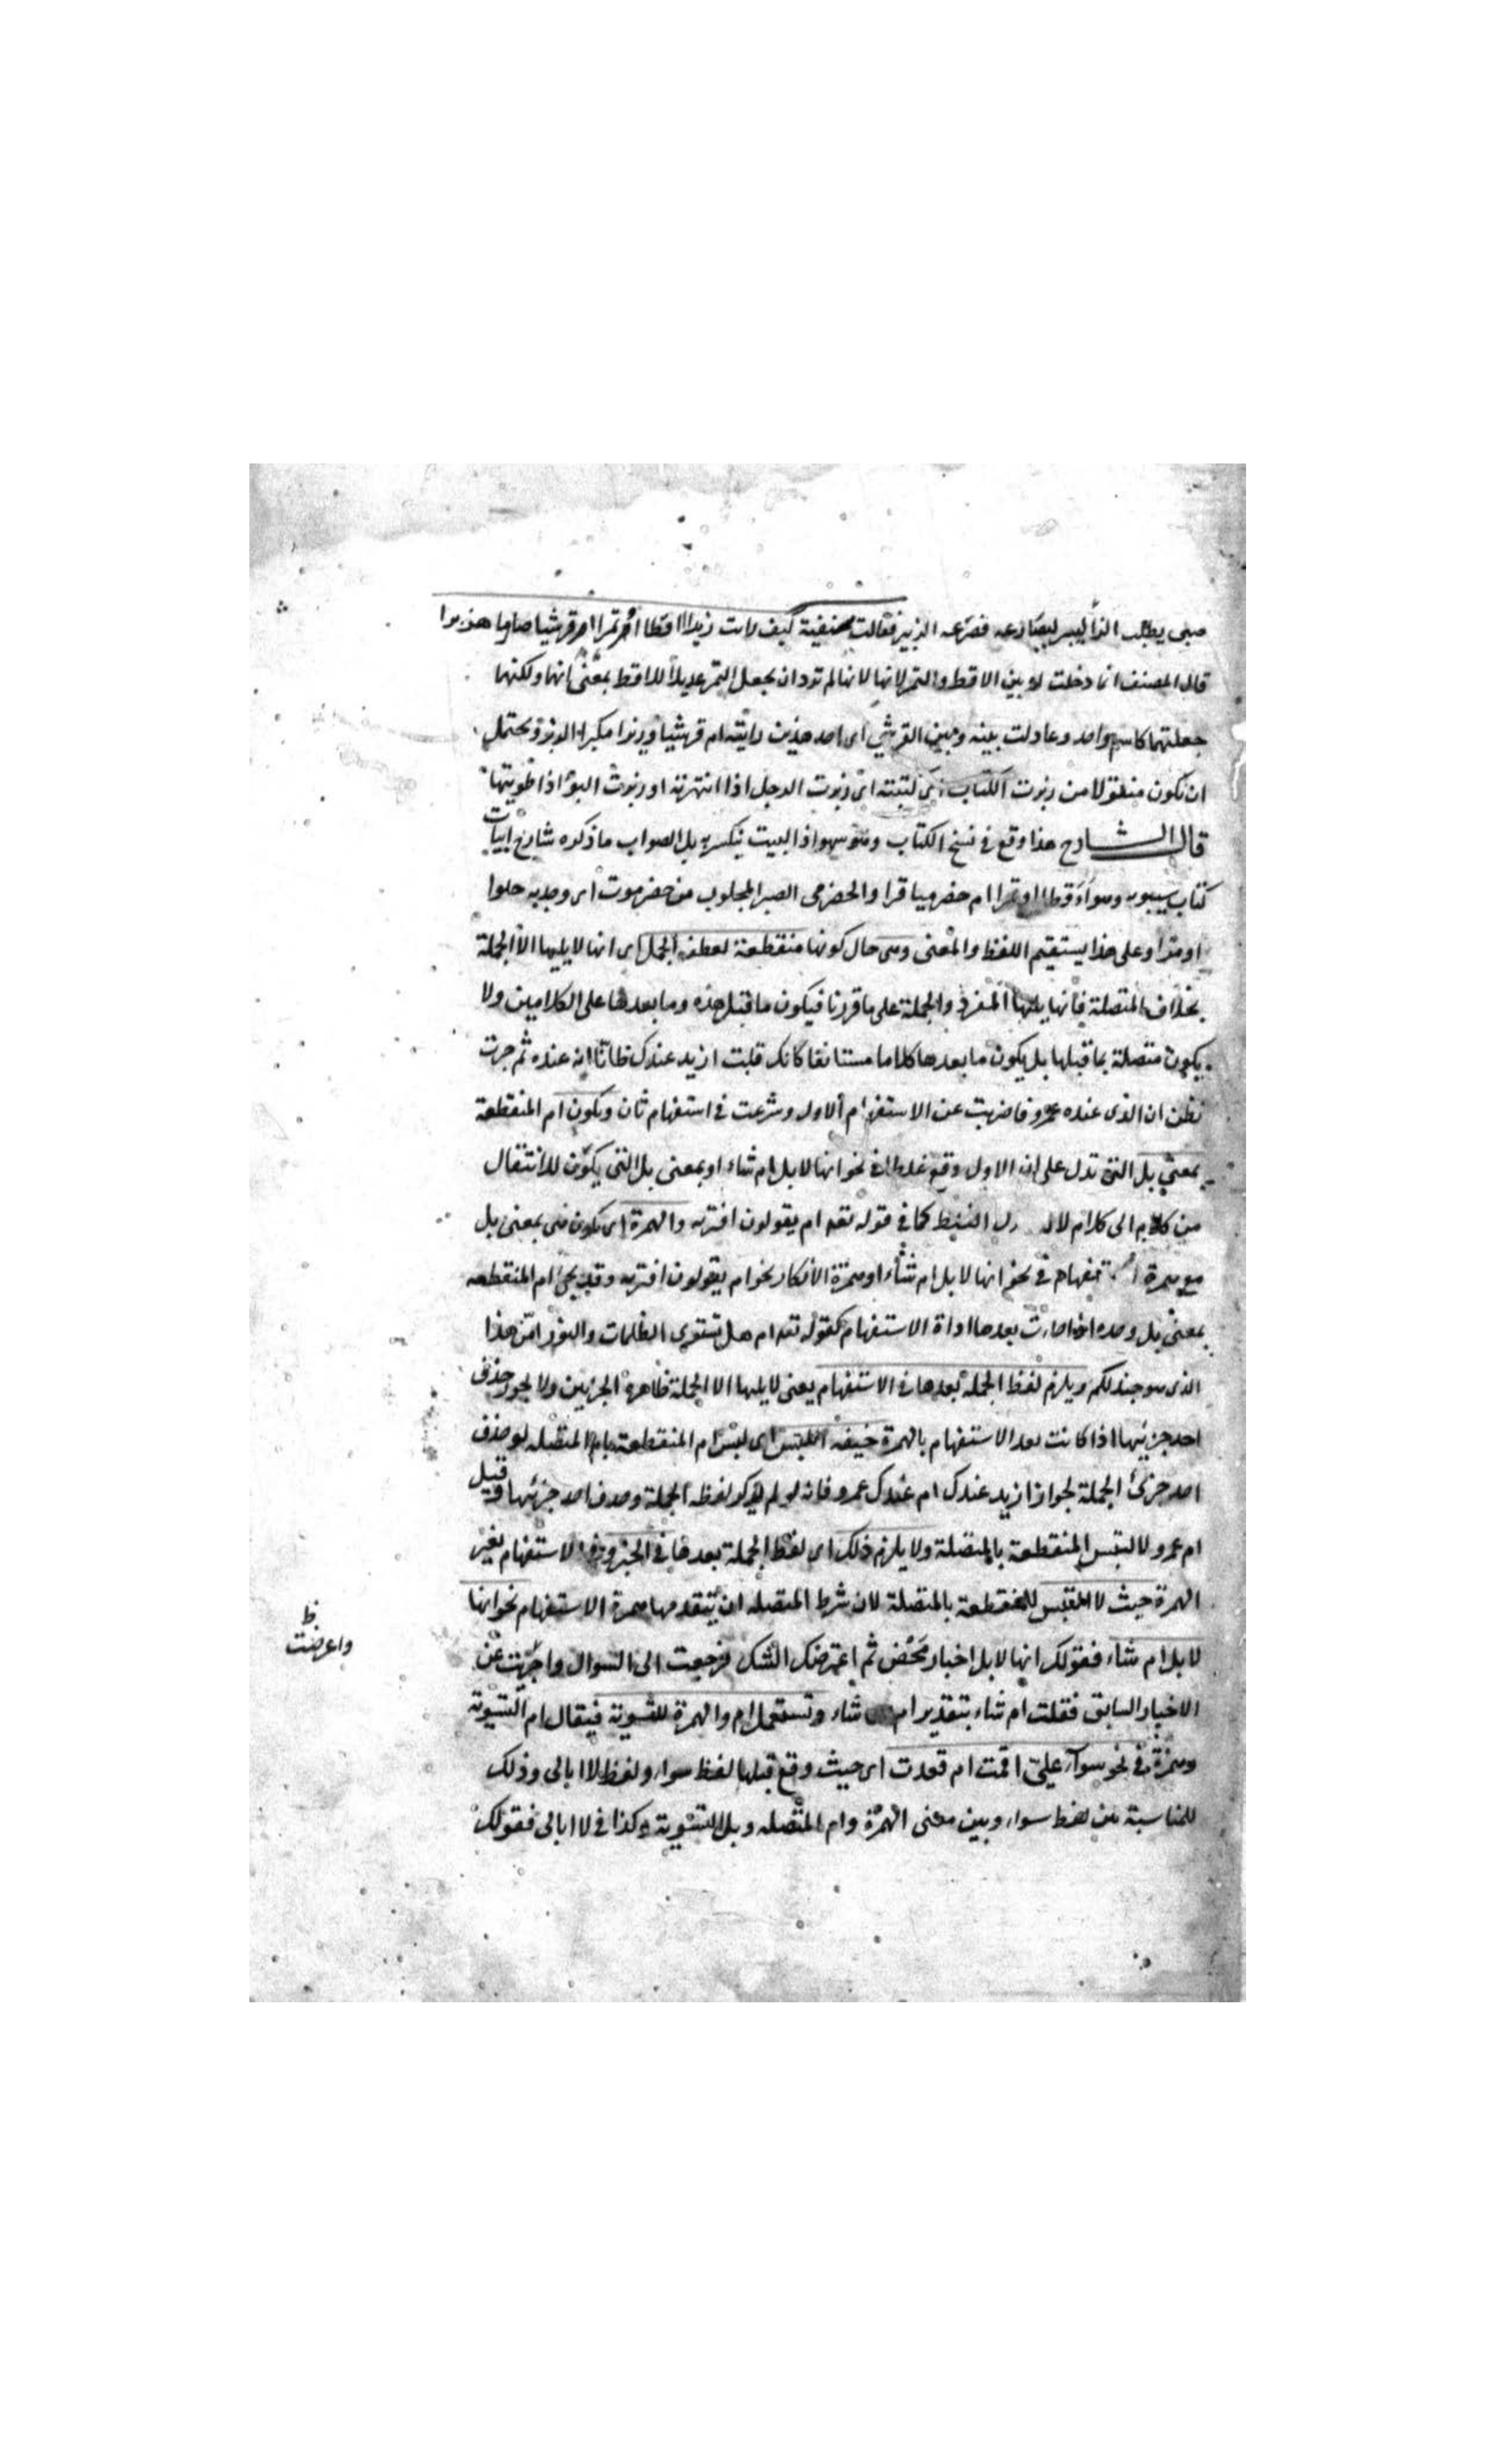 صبى يطلب الزبير ليصارعه فصرعه الزبير فقالت صفية كيف رايت زبرا اقطا او تمرا ام قرشيا صارما هزبرا
قال المصنف انما دخلت او بين الاقط والتمر لانها لم ترد ان يجعل التمر عديلا للاقط بمعنى انها ولكنها
جعلتهما كاسم واحد وعادلت بينه وبين القرشي اى احد هذين رايته ام قرشيا وزبرا مكبر الزبير ويحتمل
ان يكون منقولا من زبرت الكتاب اى كتبته اى زبرت الرجل اذا انتهرته او زبرت البئر اذا طويتها
قال الشارح هذا وقع في نسخ الكتاب وهو سهو اذ البيت ينكسر به بل الصواب ما ذكره شارح ابيات
كتاب سيبويه وهو ااقطا او تمرا ام حضرميا مرا والحضرمى الصبر المجلوب من حضرموت اى وجدته حلوا
او مرا وعلى هذا يستقيم اللفظ والمعنى وهى حال كونها منقطعة لعطف الجمل اى انها لا يليها الا الجملة
بخلاف المتصلة فانها يليها المفرد والجملة على ما قررنا فيكون ما قبل هذه وما بعدها على الكلامين ولا
يكون متصلة بما قبلها بل يكون ما بعدها كلاما مستانفا كانك قلت ازيد عندك ظانا انه عنده ثم جرت
تظن ان الذى عنده عمرو فاضربت عن الاستفهام الاول وشرعت في استفهام ثان ويكون ام المنقطعة
بمعنى بل التى تدل على ان الاول وقع غلطا في نحو انها لابل ام شاء او بمعنى بل التى يكون للانتقال
من كلام الى كلام لا الغلط كما في قوله تعه ام يقولون افتريه والهمزة اى يكون هى بمعنى بل
مع همزة استفهام في نحو انها لابل ام شاء او همزة الانكار نحو ام يقولون افتريه وقد يجئ ام المنقطعه
بمعنى بل وحده اذا جاءت بعدها اداة الاستفهام كقوله تعه ام هل تستوى الظلمات والنور امن هذا
الذى هو جند لكم ويلزم لفظ الجملة بعدها في الاستفهام يعنى لا يليها الا الجملة ظاهرة الجزئين ولا يجوز حذف
احد جزئيها اذا كانت بعد الاستفهام بالهمزة خيفة اللبس اى لبس ام المنقطعة بام المتصله لو حذف
احد جزئى الجملة لجواز ازيد عندك ام عندك عمرو فانه لو لم يذكر لفظه الجملة وحذف احد جزئيها وقيل
ام عمرو لالتبس المنقطعة بالمتصلة ولا يلزم ذلك اى لفظ الجملة بعدها في الخبر وفي الاستفهام بغير
الهمزة حيث لا تلتبس المنقطعة بالمتصلة لان شرط المتصله ان يتقدمها همزة الاستفهام نحو انها
لابل ام شاء فقولك انها لابل اخبار محض ثم اعترضك الشك فرجعت الى السوال واعرضت عن
الاخبار السابق فقلت ام شاء بتقدير ام هى شاء وتستعمل ام والهمزة للتسوية فيقال ام التسوية
وهمزة في نحو سواء على اقمت ام قعدت اى حيث وقع قبلها لفظ سواء ولفظ لا ابالى وذلك
للمناسبة بين لفظ سواء وبين معنى الهمزة وام المتصله وبل للتسوية وكذا في لا ابالى فقولك
ظ
واعرضت